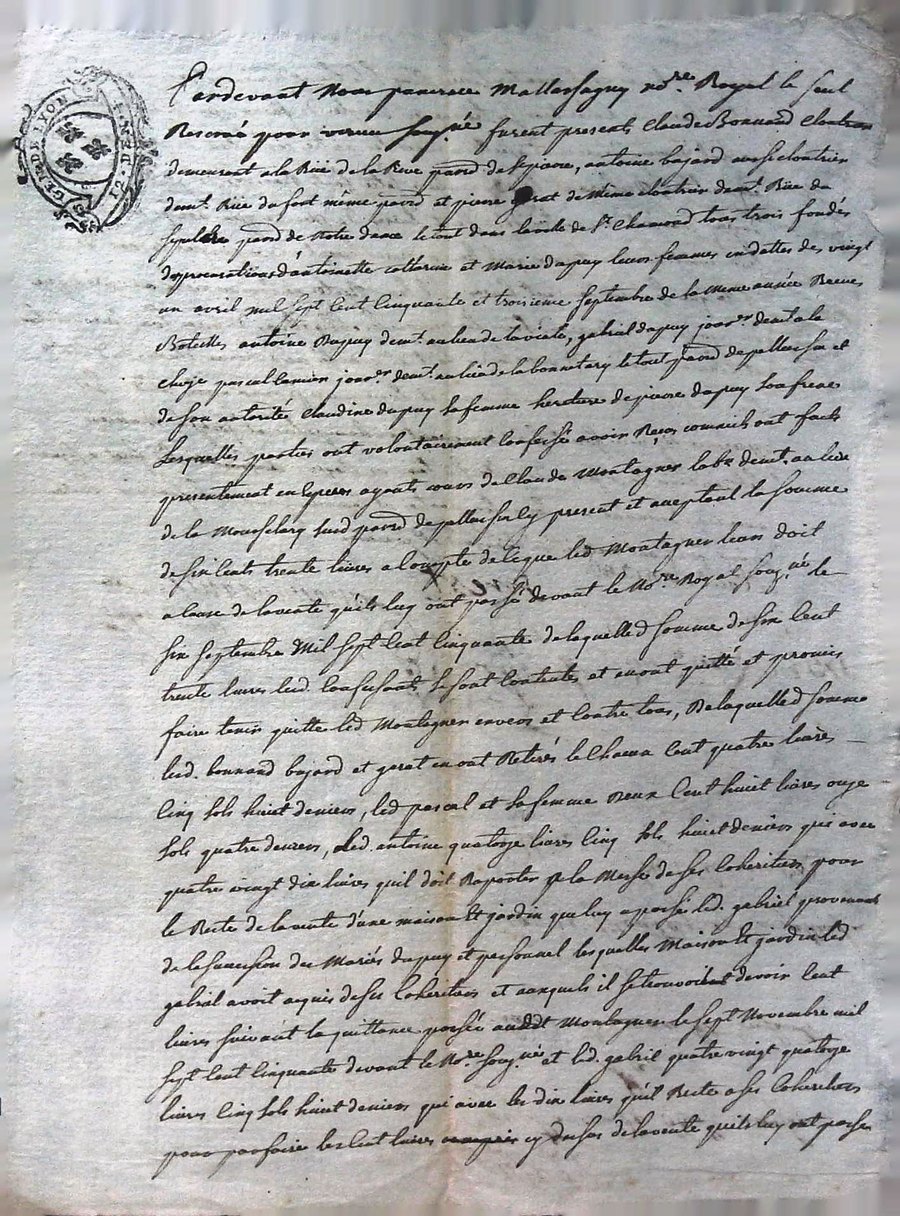 GEN. DE LYON
2. S. D.
Pardevant Nous pancrace Mallassagny no.re Royal le seul
Reservé pour Verrue sougné furent presents Claude Bonnand Cloutrier
demeurant a la Rüe de la Rive parr.d de St pierre, antoine bajard aussi cloutrier
dem.t Rüe du fort même parr.d et pierre gerat de même cloutrier dem.t Rüe du
sepulcre parr.d de Notre dame le tout dans la ville de St. Chamond tous trois fondés
de procurations d'antoinette catherine et Marie dupuy leurs femmes en dattes des vingt
un avril mil sept cent cinquante et troisieme septembre de la meme année Receues
antoine Dupuy dem.t au lieu de la viale, gabriel dupuy jour.er dem.t a la
pascal jour.er dem.t au lieu de la bonnetary le tout parr.d de pellussin et
de son autorité Claudine dupuy sa femme heretiere de pierre dupuy son frere
Lesquelles parties ont volontairement confessé avoir Reçeu comme ils ont fait
presentement en especes ayants cours de Claude Montagner lab.r dem.t au lieu
de la susd parr.d de pellussin icy present et acceptant la somme
de six cents trente livres a compte de ce que led Montagner leurs doit
a cause de la vente qu'ils luy ont passé devant le No.re Royal soug.né le
six septembre Mil sept cent cinquante de laquelle d somme de six cent
trente livres lesd confessants se sont contentés et en ont quitté et promis
faire tenir quitte led Montagner envers et contre tous, De laquelle d somme
lesd. bonnand bajard et gerat en ont Retirés le Chacun Cent quatre livres
cinq sols huit deniers, led pascal et sa femme Deux Cent huit livres onze
sols quatre deniers, led. antoine quatorze livres cinq sols huit deniers qui avec
quatre vingt dix livres qu'il doit Raporter a la Masse de ses Coheritiers pour
le Reste de la vente d'une maison et jardin que luy a passé led. gabriel provenants
de la succession des Mariés dupuy et lesquelles Maison et jardin led
gabriel avoit aquis de ses Coheritiers et auxquels il se trouvoit devoir Cent
livres suivant la quittance passée audit Montagner le sept Novembre mil
sept cent cinquante devant le No.re soug.né et led. gabriel quatre vingt quatorze
livres cinq sols huit deniers qui avec les dix livres qu'il Reste a ses Coheritiers
pour parfaire les cent livres cy dessus de la vente qu'ils luy ont passé